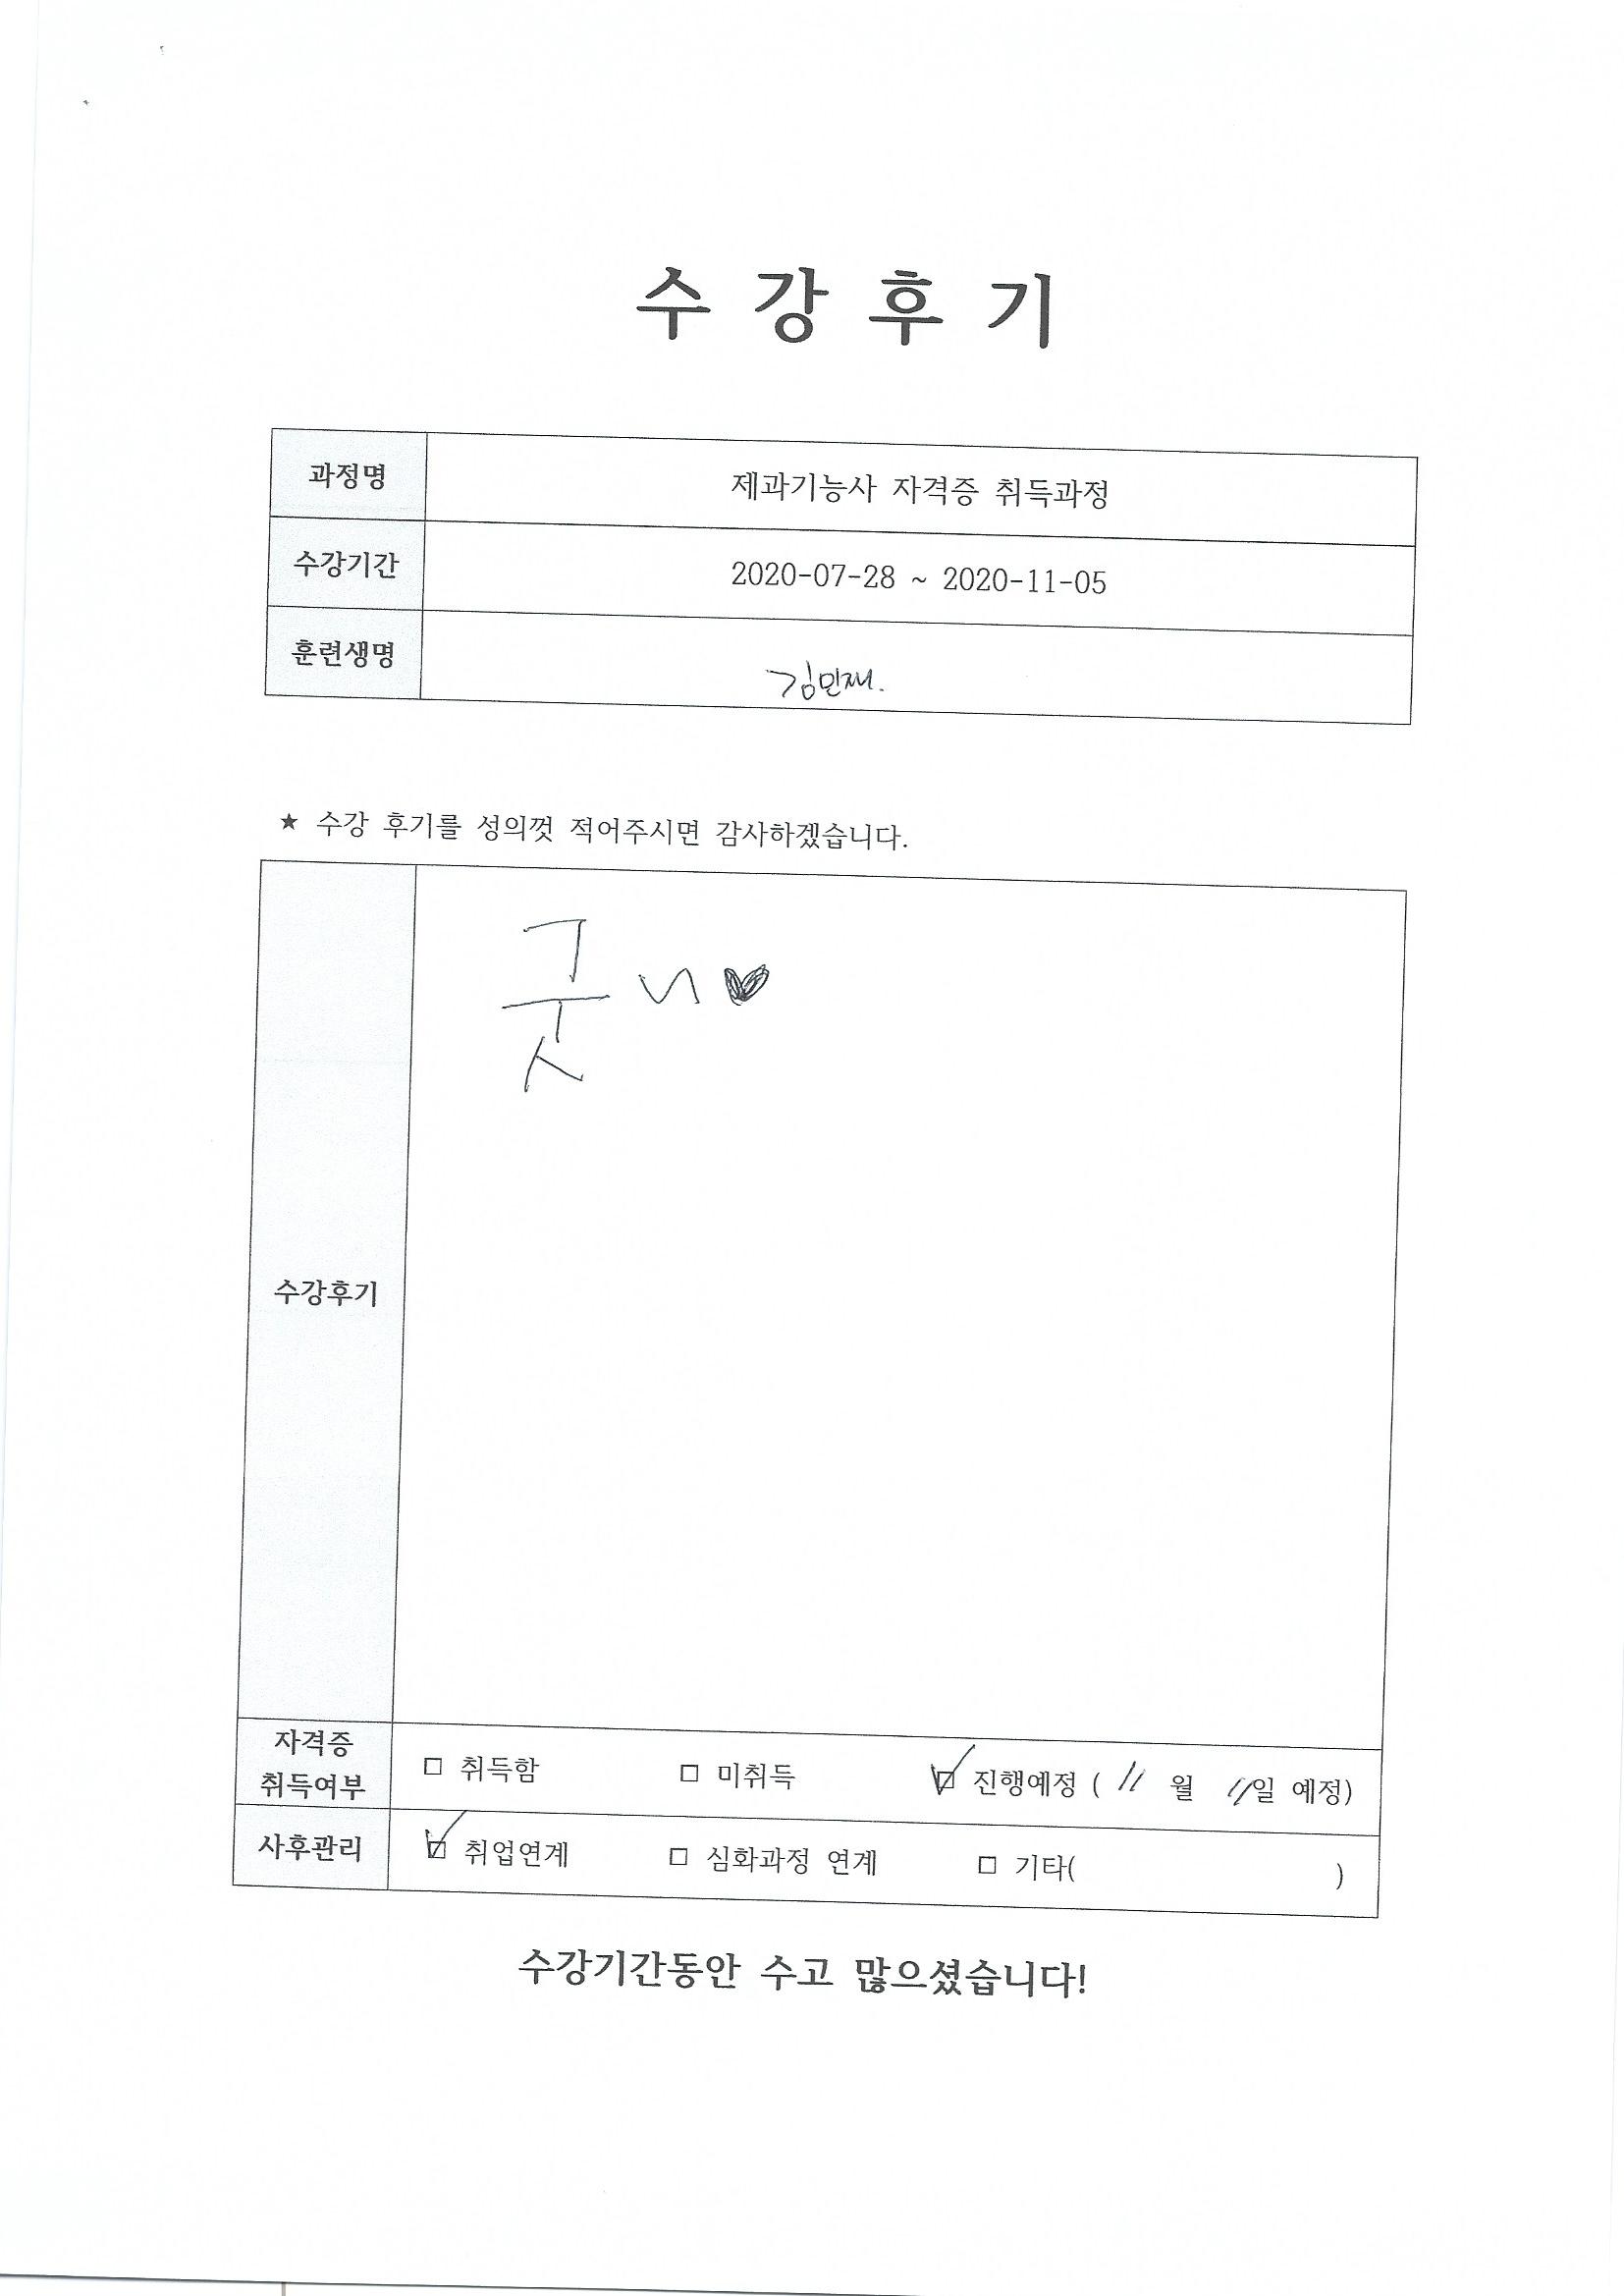 수 강 후 기
과정명 제과기능사 자격증 취득과정
수강기간 2020-07-28 ~ 2020-11-05
훈련생명 김민재.
★ 수강 후기를 성의껏 적어주시면 감사하겠습니다.
굿
수강후기
자격증
취득여부 □ 취득함 □ 미취득 ☑ 진행예정 ( 11 월 11일 예정)
사후관리 ☑ 취업연계 □ 심화과정 연계 □ 기타( )
수강기간동안 수고 많으셨습니다!